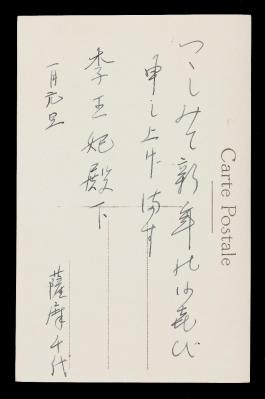 つゝしみて新年の御喜び
申し上げます
李王妃殿下
一月元旦
薩摩千代
Carte Postale